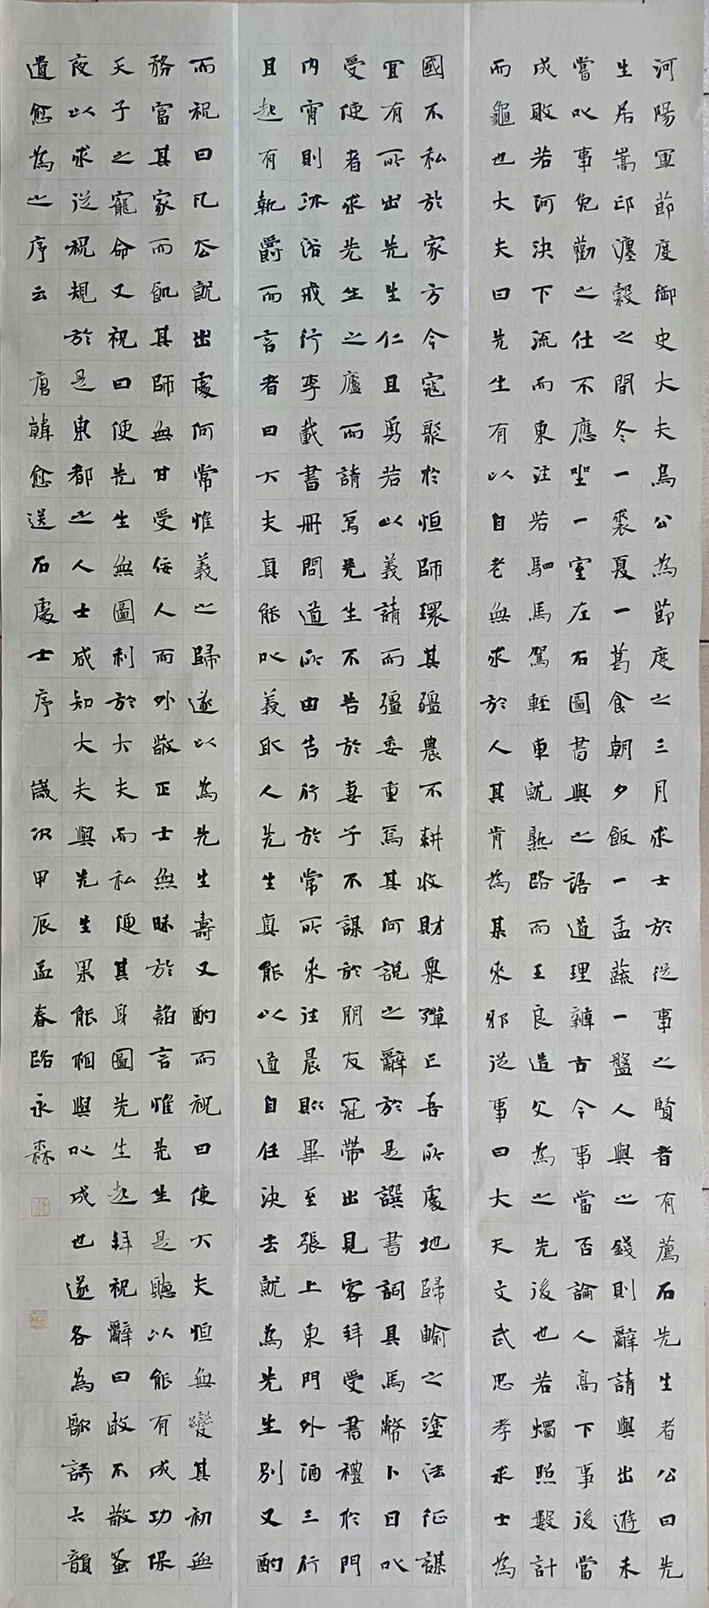 河陽軍節度御史大夫烏公為節度之三月求士於從事之賢者有薦石先生者公曰先
生居嵩邙瀍穀之間冬一裘夏一葛食朝夕飯一盂蔬一盤人與之錢則辭請與出遊未
嘗以事免勸之仕不應坐一室左右圖書與之語道理辨古今事當否論人高下事後當
成敗若河決下流而東注若駟馬駕輕車就熟路而王良造父為之先後也若燭照數計
而龜也大夫曰先生有以自老無求於人其肯為某來邪從事曰大夫文武忠孝求士為
國不私於家方今寇聚於恒師環其疆農不耕收財粟殫亡吾所處地歸輸之塗法征謀
宜有所出先生仁且勇若以義請而彊委重焉其何說之辭於是譔書詞具馬幣卜日以
受使者求先生之廬而請焉先生不告於妻子不謀於朋友冠帶出見客拜受書禮於門
內宵則沐浴戒行李載書冊問道所由告行於常所來往晨則畢至張上東門外酒三行
且起有執爵而言者曰大夫真能以義取人先生真能以道自任決去就為先生別又酌
而祝曰凡去就出處何常惟義之歸遂以為先生壽又酌而祝曰使大夫恒無變其初無
務富其家而飢其師無甘受佞人而外敬正士無昧於諂言惟先生是聽以能有成功保
天子之寵命又祝曰使先生無圖利於大夫而私便其身圖先生起拜祝辭曰敢不敬蚤
夜以求從祝規於是東都之人士咸知大夫與先生果能相與以成也遂各為歌詩六韻
遣愈為之序云 唐韓愈送石處士序 歲次甲辰孟春路永森